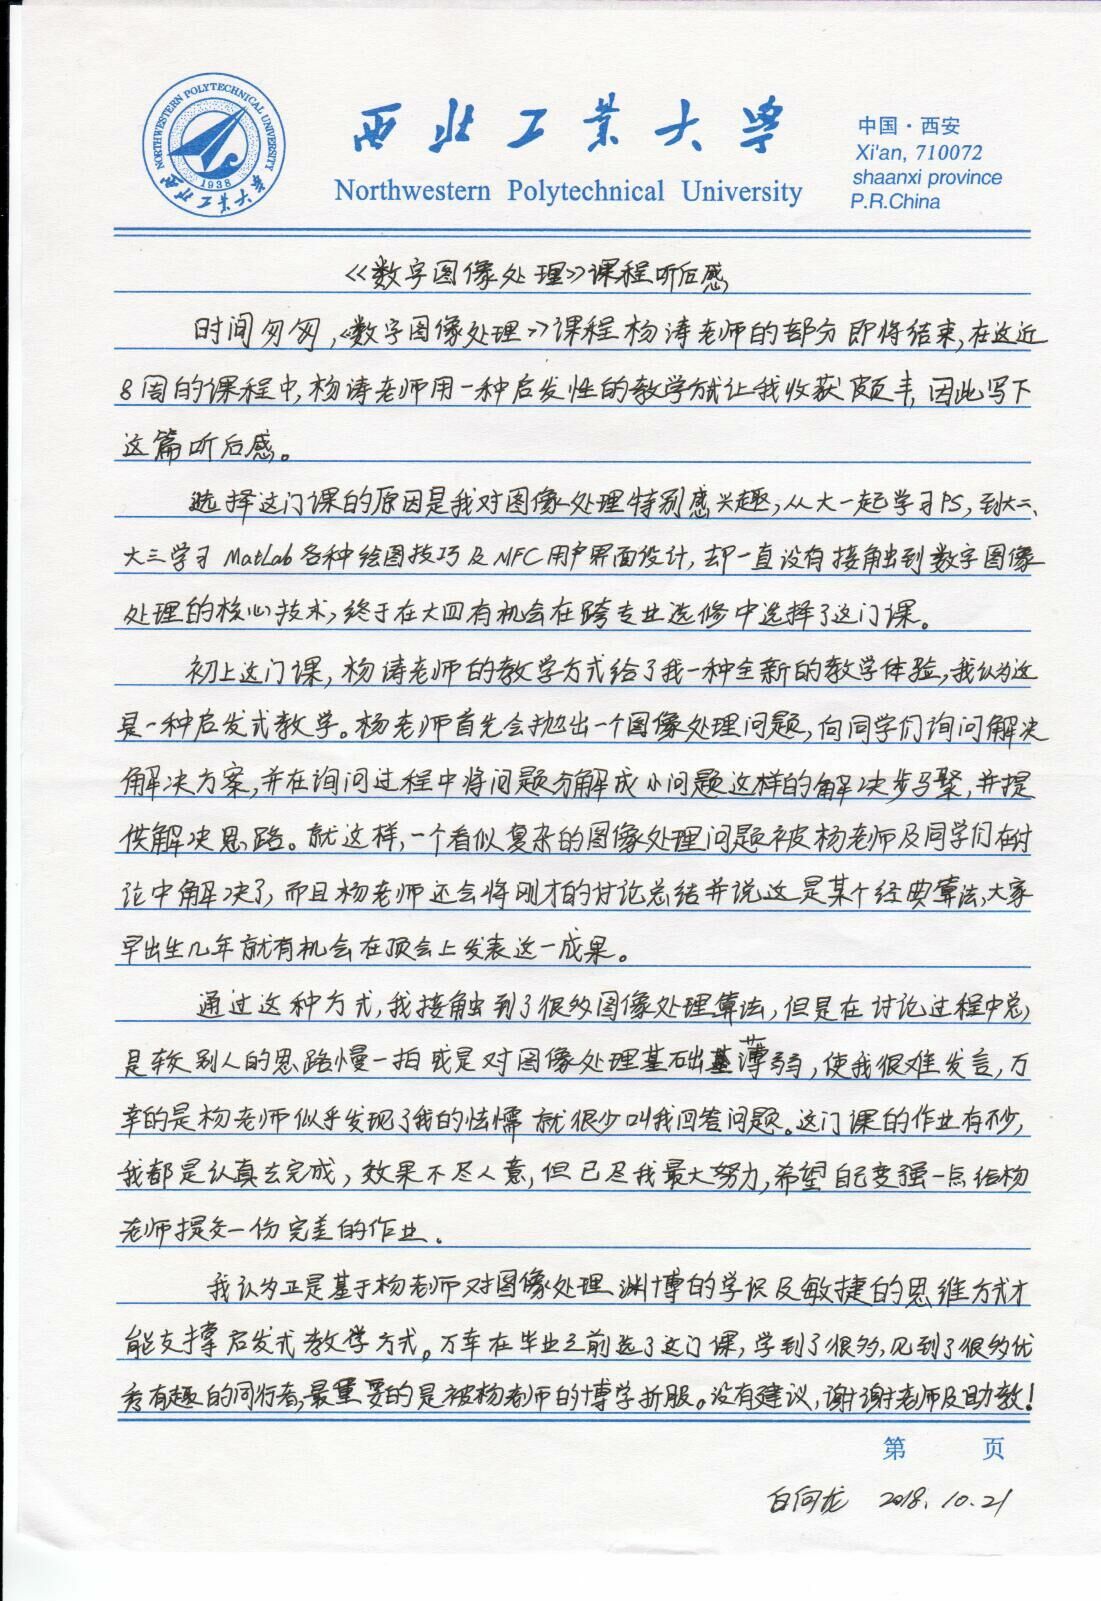 NORTHWESTERN POLYTECHNICAL UNIVERSITY
1938
西北工业大学
西北工业大学
Northwestern Polytechnical University
中国·西安
Xi'an, 710072
shaanxi province
P.R.China
《数字图像处理》课程听后感
时间匆匆,《数字图像处理》课程杨涛老师的部分即将结束,在这近
8周的课程中,杨涛老师用一种启发性的教学方式让我收获颇丰,因此写下
这篇听后感。
选择这门课的原因是我对图像处理特别感兴趣,从大一起学习PS,到大二、
大三学习MatLab各种绘图技巧及MFC用户界面设计,却一直没有接触到数字图像
处理的核心技术,终于在大四有机会在跨专业选修中选择了这门课。
初上这门课,杨涛老师的教学方式给了我一种全新的教学体验,我认为这
是一种启发式教学。杨老师首先会抛出一个图像处理问题,向同学们询问解决
解决方案,并在询问过程中将问题分解成小问题这样的解决步骤,并提
供解决思路。就这样,一个看似复杂的图像处理问题被杨老师及同学们在讨
论中解决了,而且杨老师还会将刚才的讨论总结并说这是某个经典算法,大家
早出生几年就有机会在顶会上发表这一成果。
通过这种方式,我接触到了很多图像处理算法,但是在讨论过程中总
是较别人的思路慢一拍或是对图像处理基础薄弱,使我很难发言,万
幸的是杨老师似乎发现了我的怯懦就很少叫我回答问题。这门课的作业有不少,
我都是认真去完成,效果不尽人意,但已尽我最大努力,希望自己变强一点给杨
老师提交一份完美的作业.
我认为正是基于杨老师对图像处理渊博的学识及敏捷的思维方式才
能支撑启发式教学方式。万幸在毕业之前选了这门课,学到了很多,见到了很多优
秀有趣的同行者,最重要的是被杨老师的博学折服。没有建议,谢谢老师及助教!
第 页
白向龙 2018.10.21